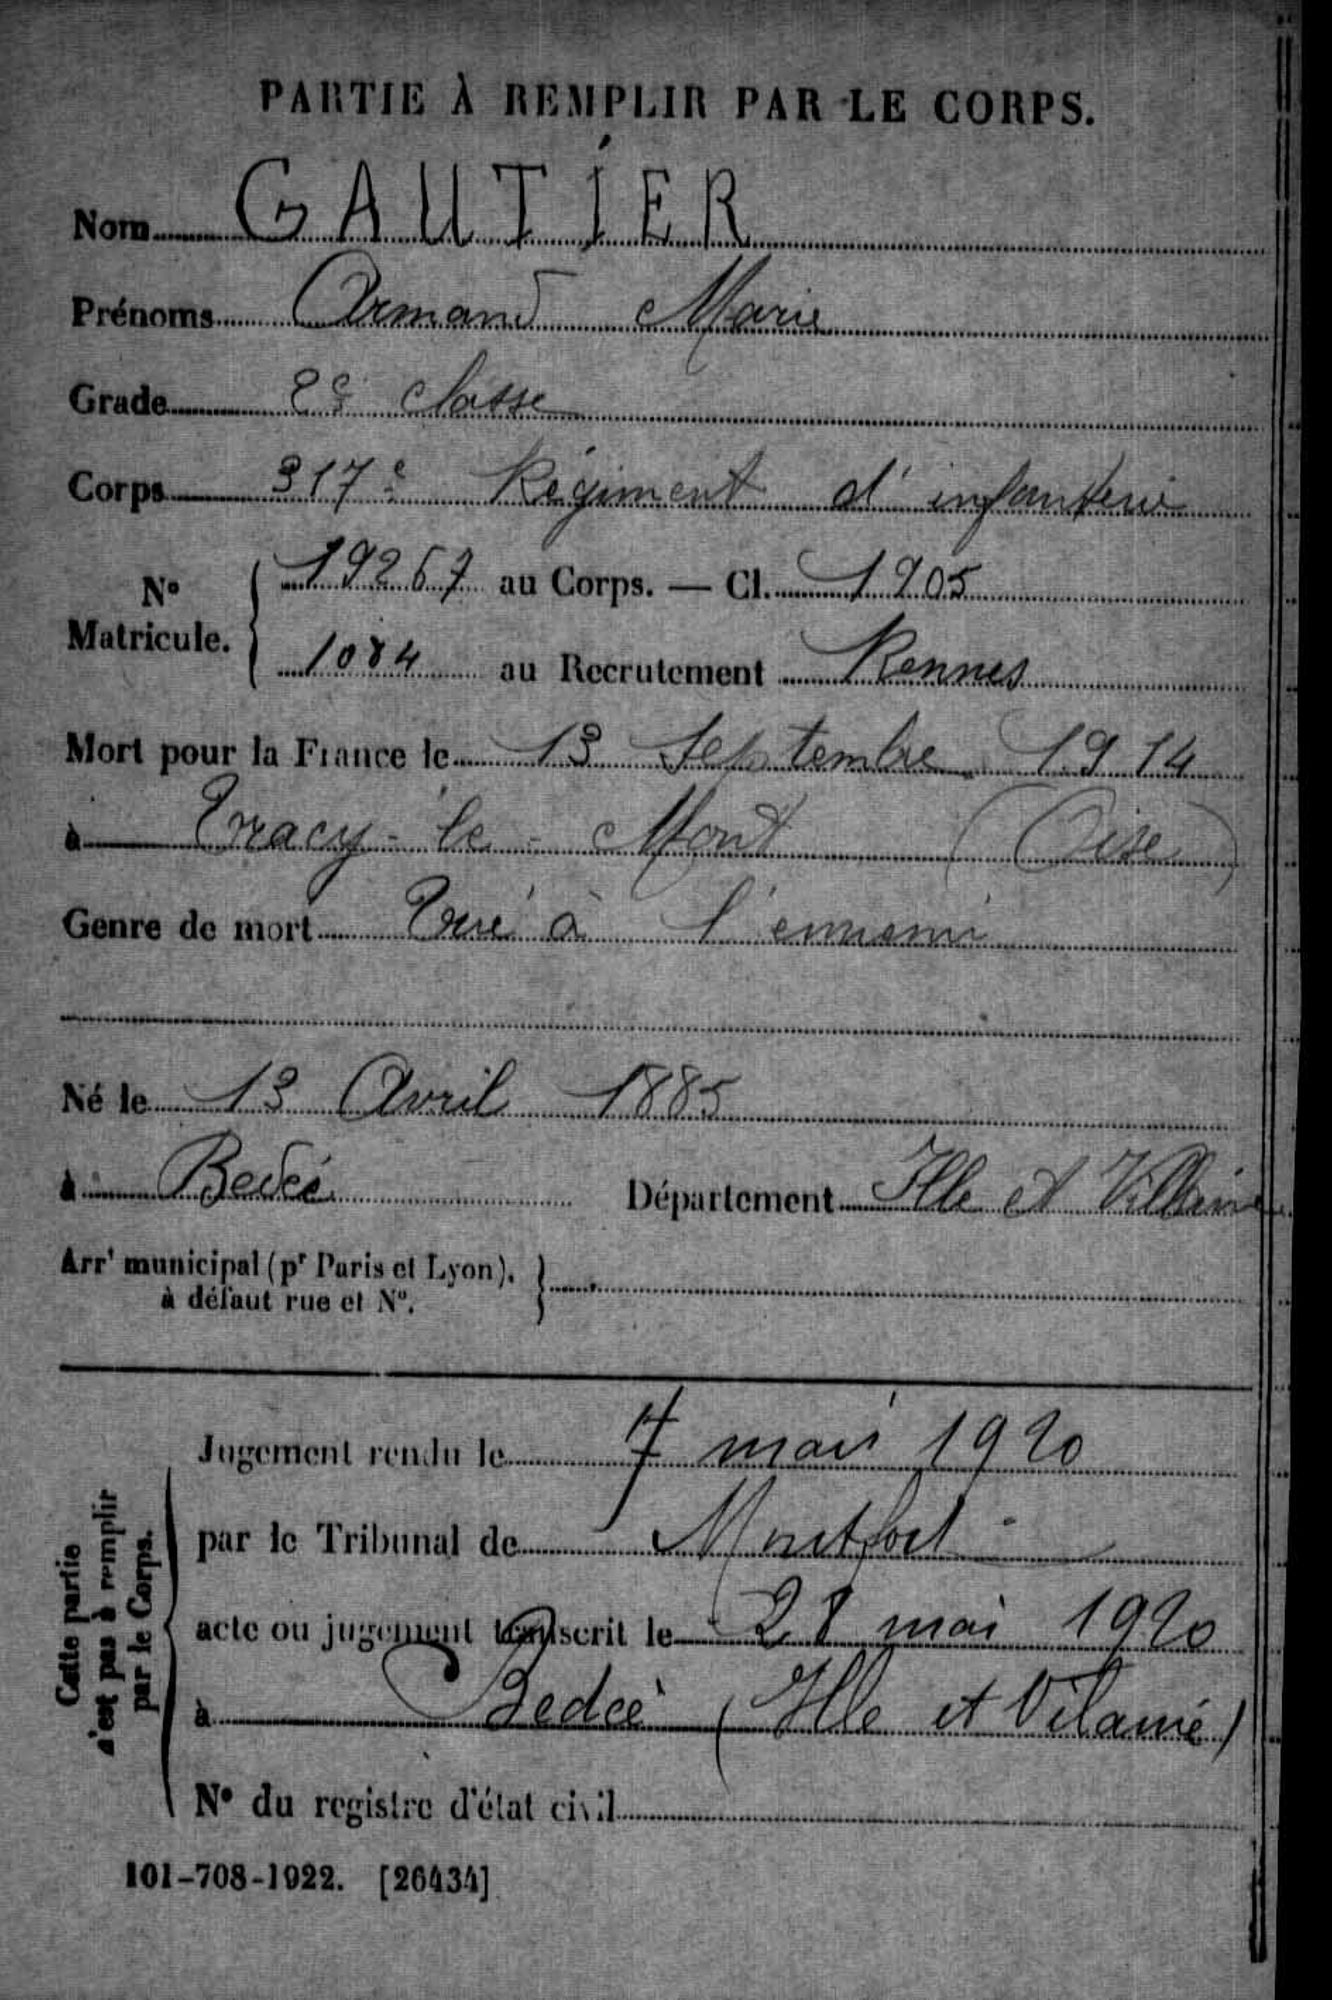 PARTIE À REMPLIR PAR LE CORPS.
Nom GAUTIER
Prénoms Armand Marie
Grade 2e classe
Corps 317e Régiment d'infanterie
N° Matricule. 19267 au Corps. — Cl. 1905
1084 au Recrutement Rennes
Mort pour la France le 13 Septembre 1914
à Tracy-le-Mont (Oise)
Genre de mort Tué à l'ennemi
Né le 13 Avril 1885
à Bedée Département Ille et Villaine
Arrt municipal (pr Paris et Lyon),
à défaut rue et N°.
Jugement rendu le 7 mai 1920
par le Tribunal de Montfort
acte ou jugement transcrit le 28 mai 1920
à Bedée (Ille et Vilaine)
N° du registre d'état civil
Cette partie
n'est pas à remplir
par le Corps.
101-708-1922. [26434]